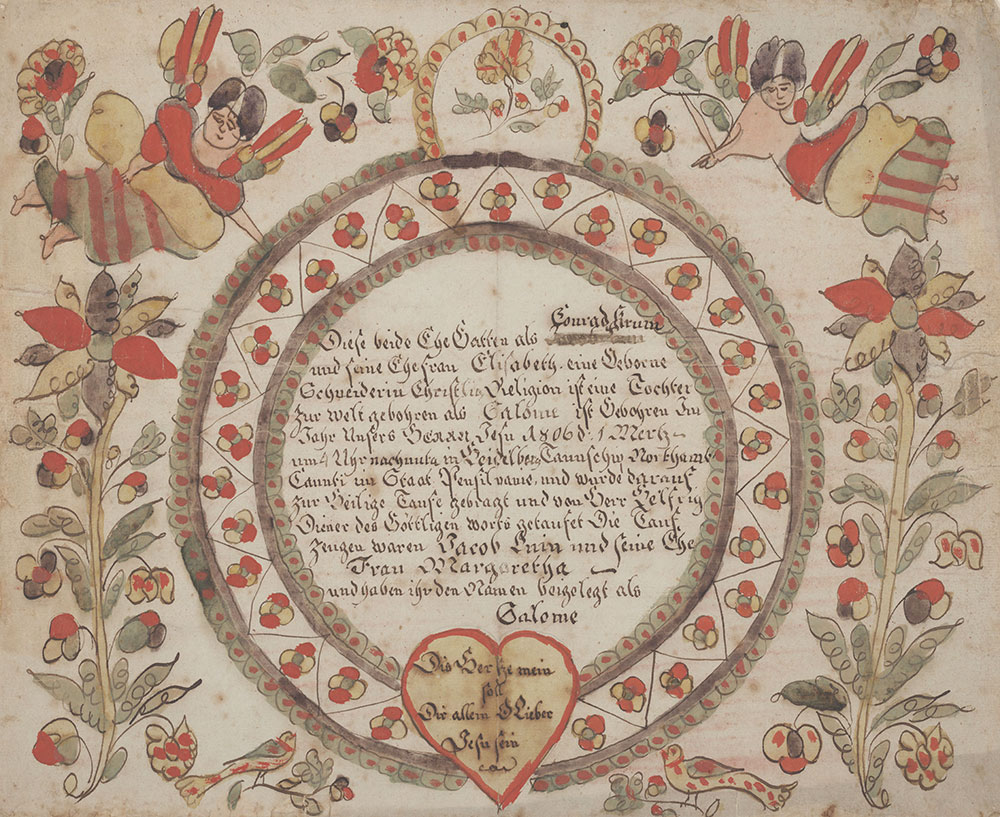 Conrad Krum
Diese beide Ehe Gatten als
und seine Ehefrau Elisabeth. eine Geborne
Schneiderin Christlig Religion ist eine Tochter
Zur welt gebohren als Salome ist Gebohren Im
Jahr Unsers HERRN Jesu 1806 d. 1 Mertz
um 4 Uhr nachmitag in Heidelberg Taunschip Northamt
Caunti im Staat Pensilvanie, und wurde darauf
Zur Heilige Taufe gebragt und von Herr Helfrig
Diener des Göttligen worts getaufet Die Tauf
Zeugen waren Jacob und seine Ehe
Frau Margaretha
und haben ihr den Namen beygelegt als
Salome
Dis Hertze mein
soll
Dir allein O Lieber
Jesu sein